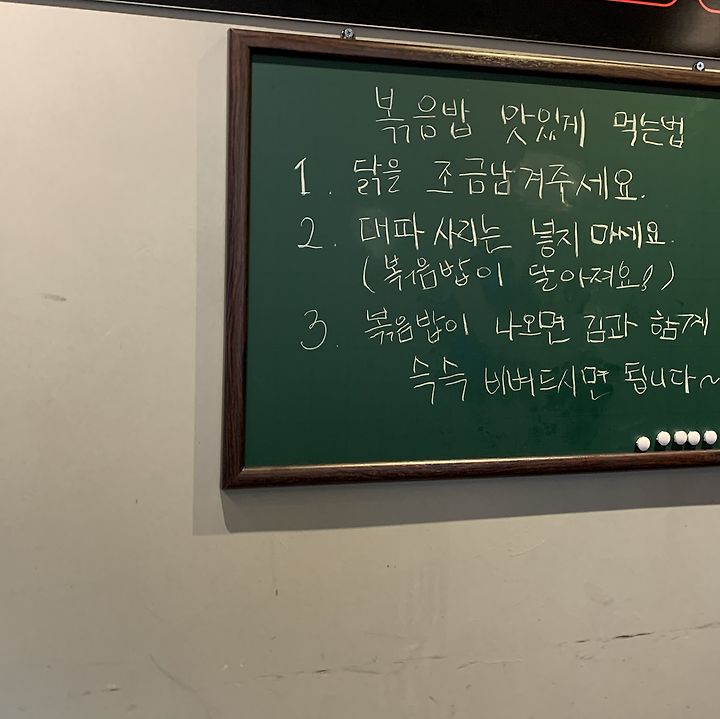 볶음밥 맛있게 먹는법
1. 닭을 조금남겨주세요.
2. 대파사리는 넣지마세요.
(볶음밥이 달아져요!)
3. 볶음밥이 나오면 김과 함께
슥슥 비벼드시면 됩니다~